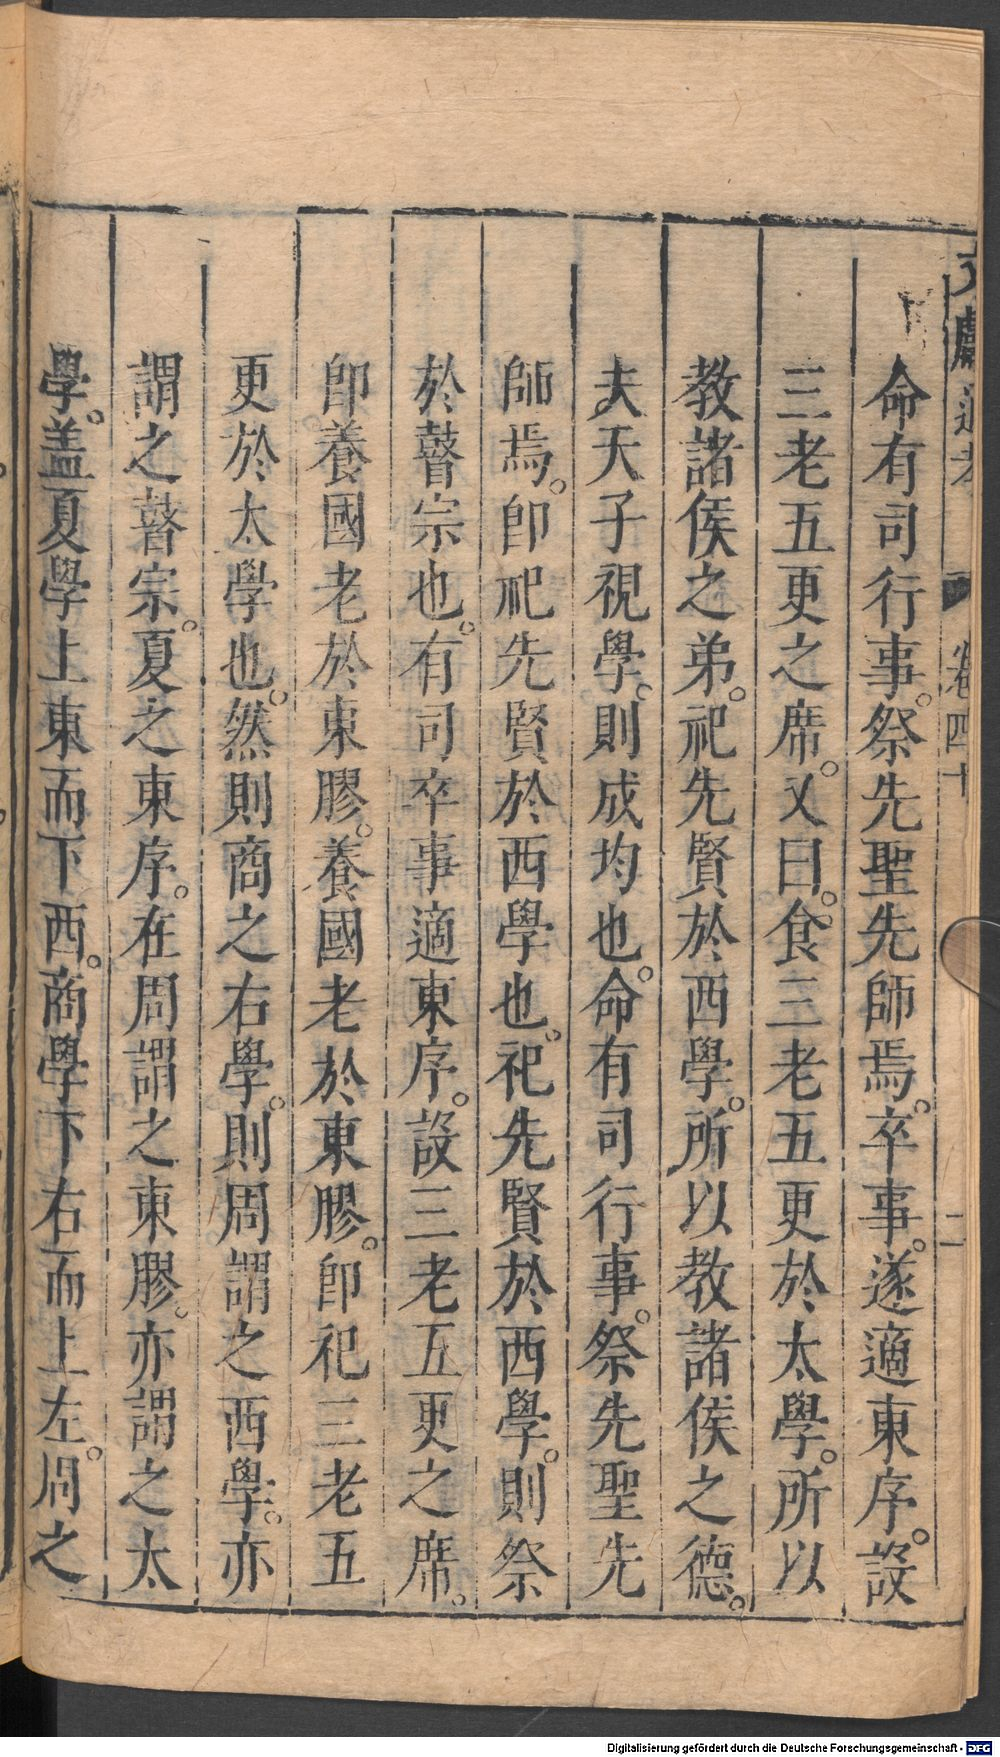 文獻通考 卷四十 二
命有司行事。祭先聖先師焉。卒事。遂適東序。設
三老五更之席。又曰。食三老五更於太學。所以
教諸侯之弟。祀先賢於西學。所以教諸侯之德。
夫天子視學。則成均也。命有司行事。祭先聖先
師焉。卽祀先賢於西學也。祀先賢於西學。則祭
於瞽宗也。有司卒事適東序。設三老五更之席。
卽。養國老於東膠。養國老於東膠。卽祀三老五
更於太學也。然則商之右學。則周謂之西學。亦
謂之瞽宗。夏之東序。在周謂之東膠。亦謂之太
學。盖夏學上東而下西。商學下右而上左。周之
Digitalisierung gefördert durch die Deutsche Forschungsgemeinschaft - DFG